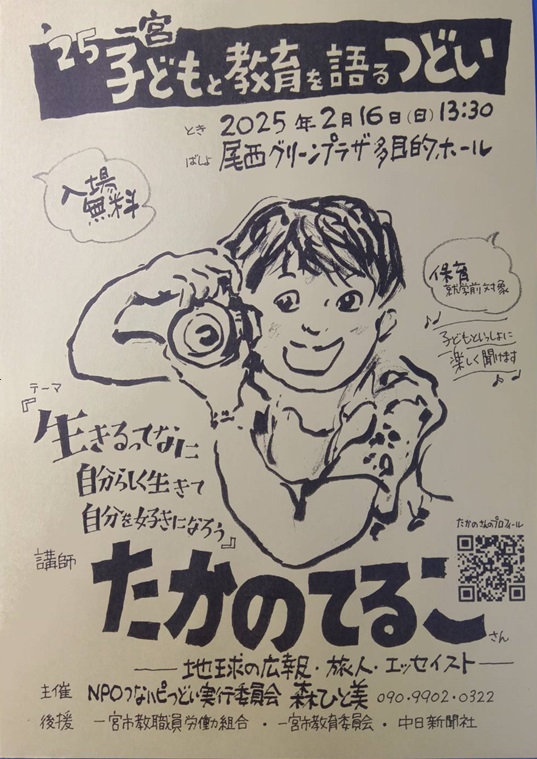 '25 一宮
子どもと教育を語るつどい
とき 2025年2月16日(日)13:30
ばしょ 尾西グリーンプラザ多目的ホール
入場
無料
保育
就学前対象
子どもといっしょに
楽しく聞けます
テーマ
『生きるってなに
自分らしく生きて
自分を好きになろう』
たかのさんのプロフィール
講師 たかのてるこさん
地球の広報・旅人・エッセイスト
主催 NPOつなハピつどい実行委員会 森ひと美 090・9902・0322
後援 一宮市教職員労働組合・一宮市教育委員会・中日新聞社